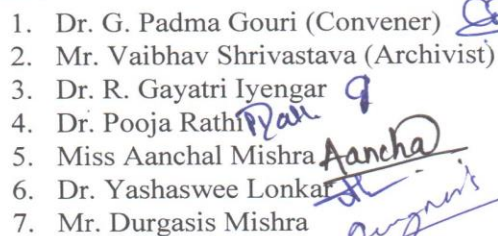 1. Dr. G. Padma Gouri (Convener)
2. Mr. Vaibhav Shrivastava (Archivist)
3. Dr. R. Gayatri Iyengar
4. Dr. Pooja Rathi
5. Miss Aanchal Mishra Aancha
6. Dr. Yashaswee Lonkar
7. Mr. Durgasis Mishra